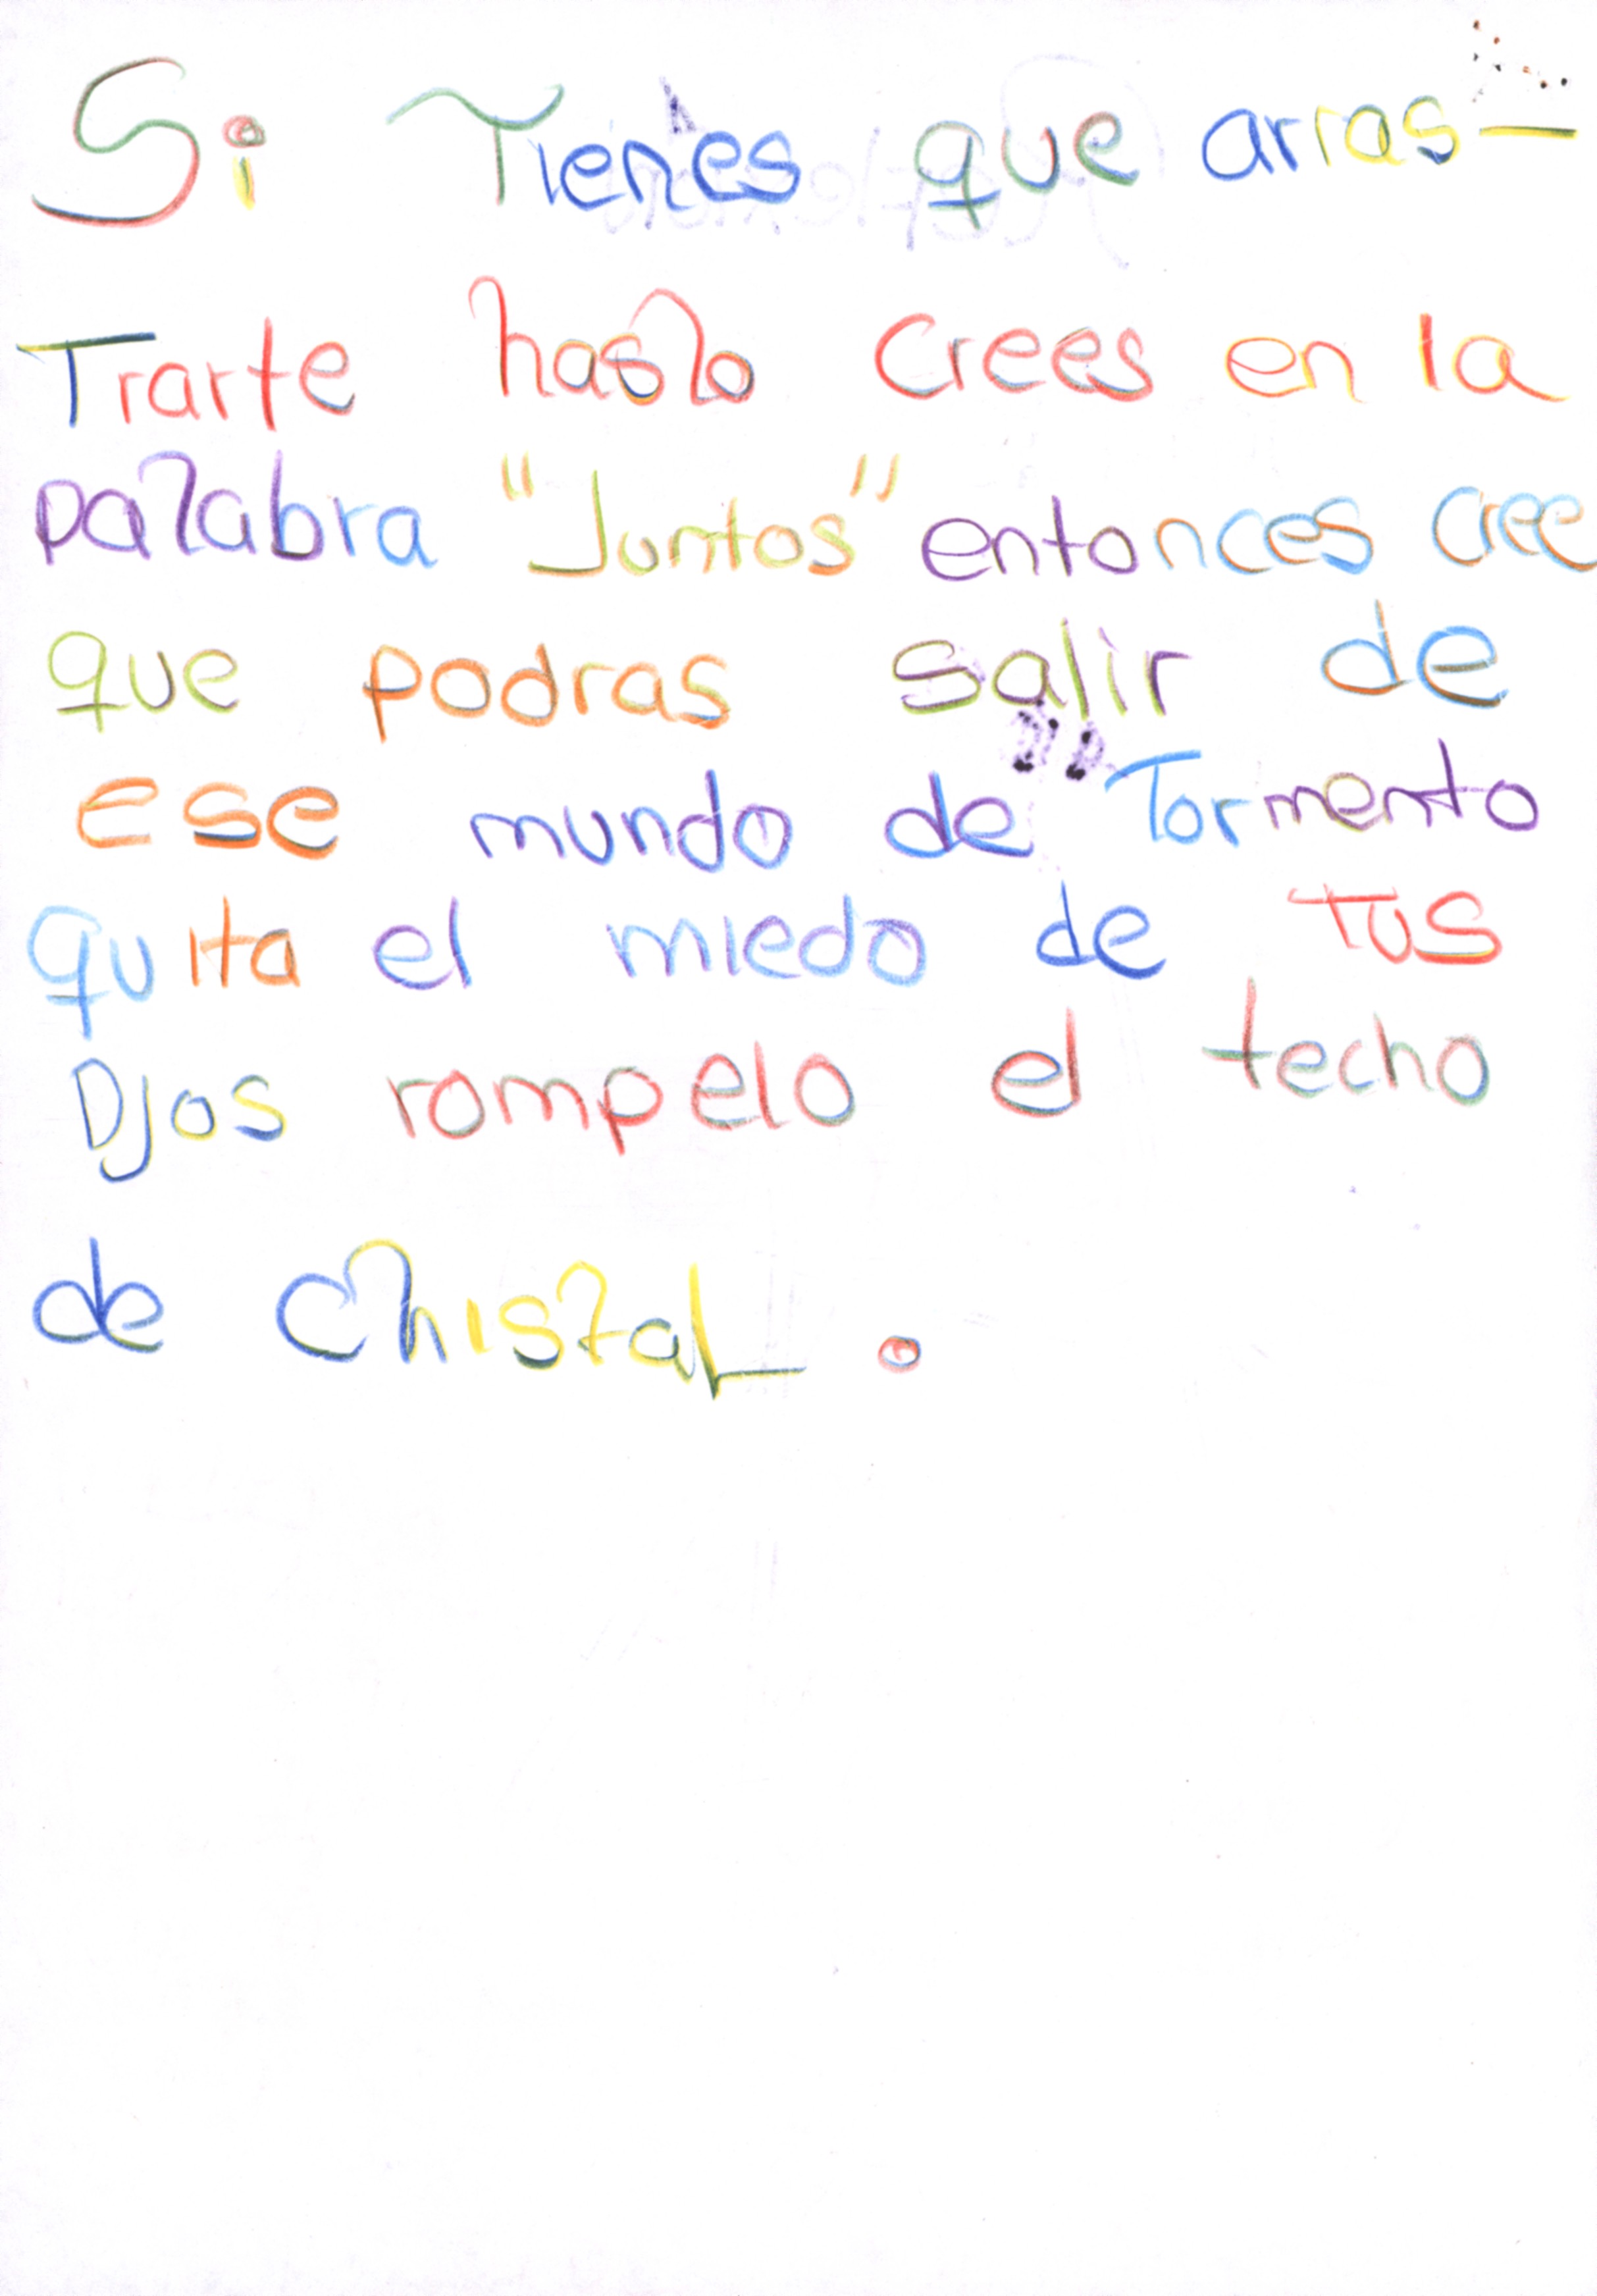 Si Tienes que arras-
Trarte haslo crees en la
palabra "Juntos" entonces cree
que podras salir de
ese mundo de Tormento
quita el miedo de tus
Ojos rompelo el techo
de Chistal.